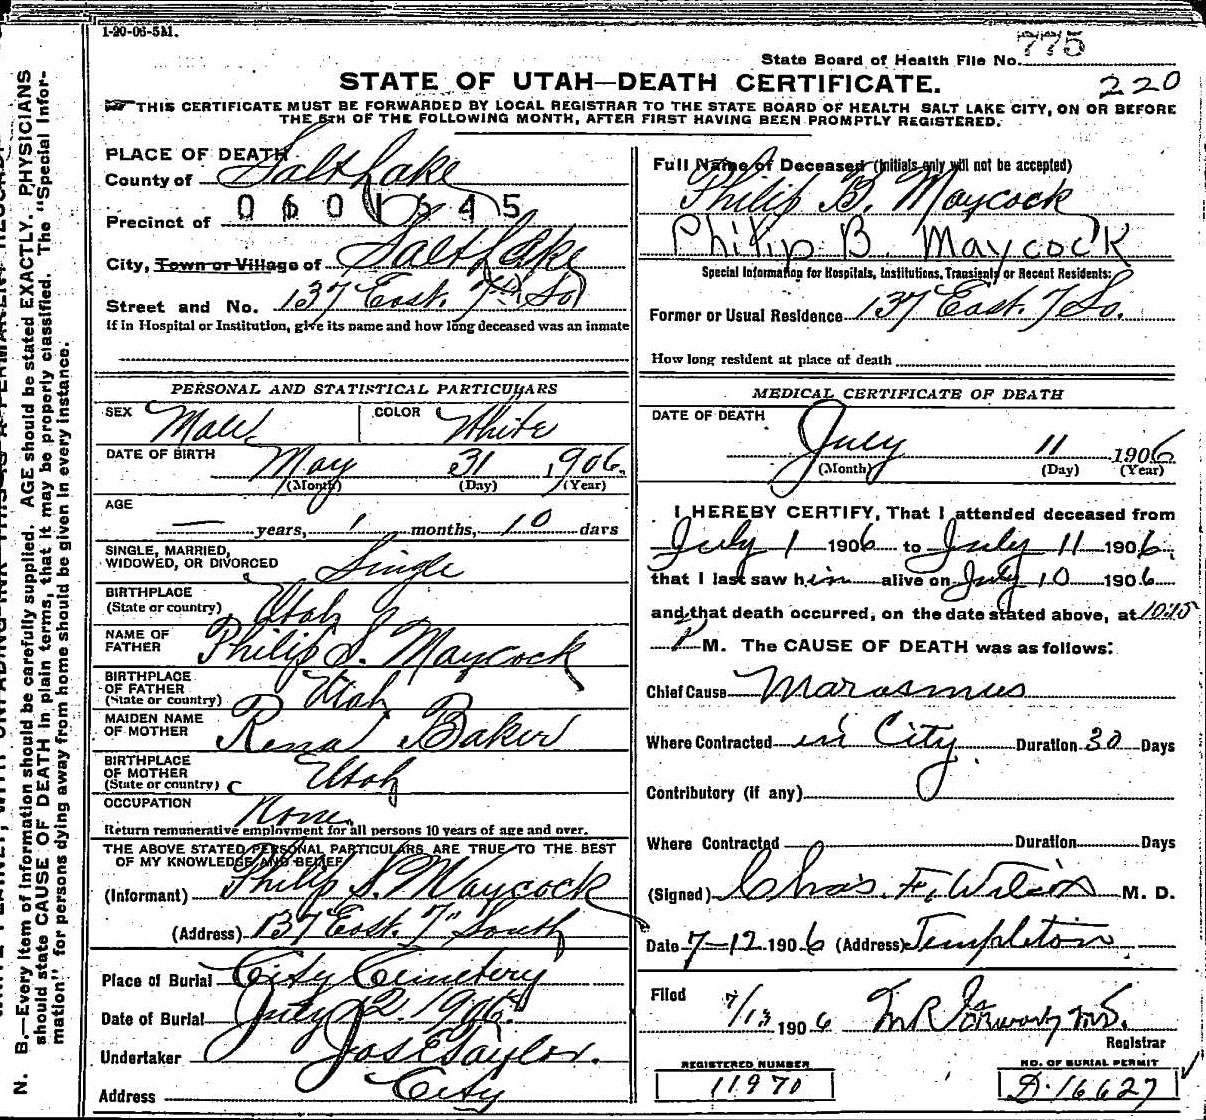 1-20-06-5M.
775
State Board of Health File No.
220
STATE OF UTAH—DEATH CERTIFICATE.
THIS CERTIFICATE MUST BE FORWARDED BY LOCAL REGISTRAR TO THE STATE BOARD OF HEALTH SALT LAKE CITY, ON OR BEFORE
THE 5th OF THE FOLLOWING MONTH, AFTER FIRST HAVING BEEN PROMPTLY REGISTERED.
PLACE OF DEATH
County of Salt Lake
0601645
Precinct of
City, Town or Village of Salt Lake
Street and No. 137 East. 7th So
If in Hospital or Institution, give its name and how long deceased was an inmate
Full Name of Deceased (Initials only will not be accepted)
Philip B. Maycock
Philip B. Maycock
Special Information for Hospitals, Institutions, Transients or Recent Residents:
Former or Usual Residence 137 East. 7 So.
How long resident at place of death
PERSONAL AND STATISTICAL PARTICULARS
SEX Male COLOR White
DATE OF BIRTH May 31 1906.
(Month) (Day) (Year)
AGE
— years, 1 months, 10 days
SINGLE, MARRIED,
WIDOWED, OR DIVORCED Single
BIRTHPLACE
(State or country) Utah
NAME OF
FATHER Philip S. Maycock
BIRTHPLACE
OF FATHER
(State or country) Utah
MAIDEN NAME
OF MOTHER Rena Baker
BIRTHPLACE
OF MOTHER
(State or country) Utah
OCCUPATION None
Return remunerative employment for all persons 10 years of age and over.
THE ABOVE STATED PERSONAL PARTICULARS ARE TRUE TO THE BEST
OF MY KNOWLEDGE AND BELIEF
(Informant) Philip S. Maycock
(Address) 137 East. 7" South
Place of Burial City Cemetery
Date of Burial July 12. 1906.
Undertaker Jos E Taylor.
Address City
MEDICAL CERTIFICATE OF DEATH
DATE OF DEATH
July 11 1906
(Month) (Day) (Year)
I HEREBY CERTIFY, That I attended deceased from
July 1 1906 to July 11 1906,
that I last saw him alive on July 10 1906
and that death occurred, on the date stated above, at 10:15
P M. The CAUSE OF DEATH was as follows:
Chief Cause Marasmus
Where Contracted in City Duration 30 Days
Contributory (if any)
Where Contracted Duration Days
(Signed) Chas. F. Wilcox M. D.
Date 7-12 1906 (Address) Templeton
Filed 7/13 1906 M.D.
Registrar
REGISTERED NUMBER
11970
NO. OF BURIAL PERMIT
D.16627
N. B.—Every item of information should be carefully supplied. AGE should be stated EXACTLY. PHYSICIANS
should state CAUSE OF DEATH in plain terms, that it may be properly classified. The "Special Infor-
mation" for persons dying away from home should be given in every instance.